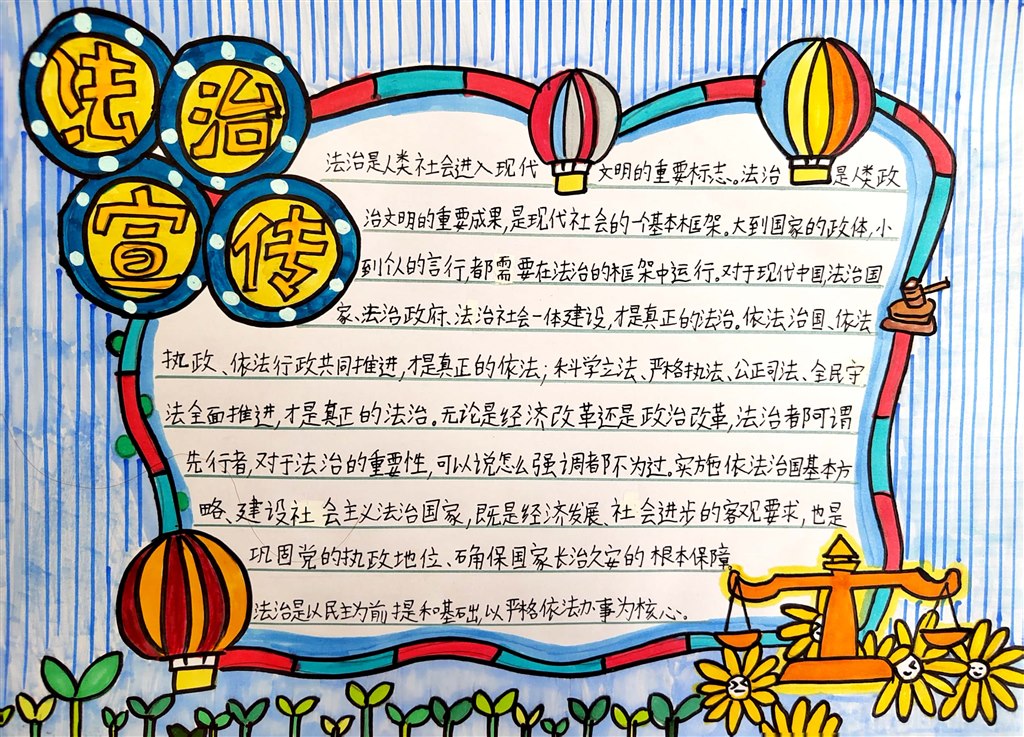 法治宣传
法治是人类社会进入现代文明的重要标志。法治是人类政
治文明的重要成果,是现代社会的一个基本框架。大到国家的政体,小
到个人的言行,都需要在法治的框架中运行。对于现代中国,法治国
家、法治政府、法治社会一体建设,才是真正的法治。依法治国、依法
执政、依法行政共同推进,才是真正的依法;科学立法、严格执法、公正司法、全民守
法全面推进,才是真正的法治。无论是经济改革还是政治改革,法治都可谓
先行者,对于法治的重要性,可以说怎么强调都不为过。实施依法治国基本方
略、建设社会主义法治国家,既是经济发展、社会进步的客观要求,也是
巩固党的执政地位、确保国家长治久安的根本保障。
法治是以民主为前提和基础,以严格依法办事为核心、